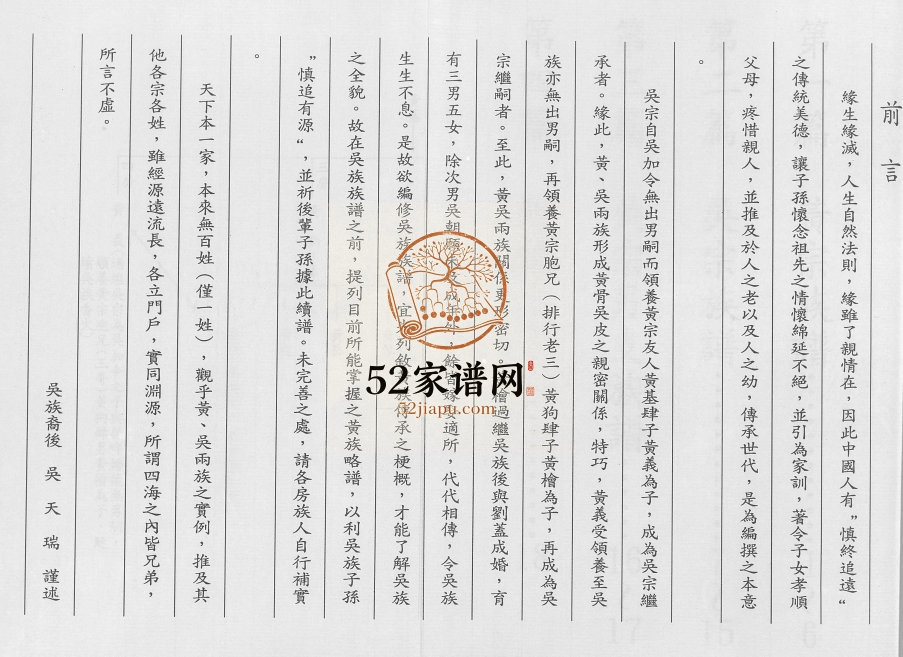 前言
緣生緣滅，人生自然法則，緣雖了親情在，因此中國人有"慎終追遠"
之傳統美德，讓子孫懷念祖先之情懷綿延不絕，並引為家訓，著令子女孝順
父母，疼惜親人，並推及於人之老以及人之幼，傳承世代，是為編撰之本意
。
吳宗自吳加令無出男嗣而領養黃宗友人黃基肆子黃義為子，成為吳宗繼
承者。緣此，黃、吳兩族形成黃骨吳皮之親密關係，特巧，黃義受領養至吳
族亦無出男嗣，再領養黃宗胞兄（排行老三）黃狗肆子黃檜為子，再成為吳
宗繼嗣者。至此，黃吳兩族關係更形密切。檜過繼吳族後與劉蓋成婚，育
有三男五女，除次男吳朝願 成年外，餘皆嫁娶適所，代代相傳，令吳族
生生不息。是故欲編修吳族族譜，宜 列敘 族傳承之梗概，才能了解吳族
之全貌。故在吳族族譜之前，提列目前所能掌握之黃族略譜，以利吳族子孫
"慎追有源"，並祈後輩子孫據此續譜。未完善之處，請各房族人自行補實
。
天下本一家，本來無百姓（僅一姓），觀乎黃、吳兩族之實例，推及其
他各宗各姓，雖經源遠流長，各立門戶，實同淵源，所謂四海之內皆兄弟，
所言不虛。
吳族裔後 吳天瑞 謹述
52家谱网
52jiapu.com